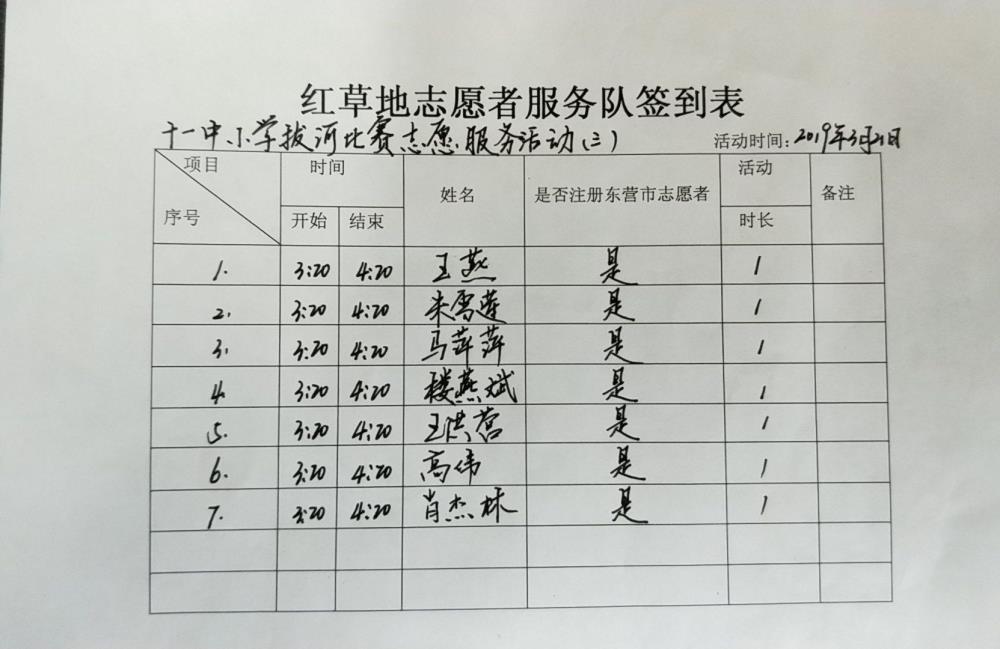 红草地志愿者服务队签到表
十一中小学拔河比赛志愿服务活动(三) 活动时间:2019年3月21日
项目 时间 姓名 是否注册东营市志愿者 活动 备注
序号 开始 结束 时长
1. 3:20 4:20 王燕 是 1
2. 3:20 4:20 朱雪莲 是 1
3. 3:20 4:20 马萍萍 是 1
4. 3:20 4:20 楼燕斌 是 1
5. 3:20 4:20 王洪营 是 1
6. 3:20 4:20 高伟 是 1
7. 3:20 4:20 肖杰林 是 1